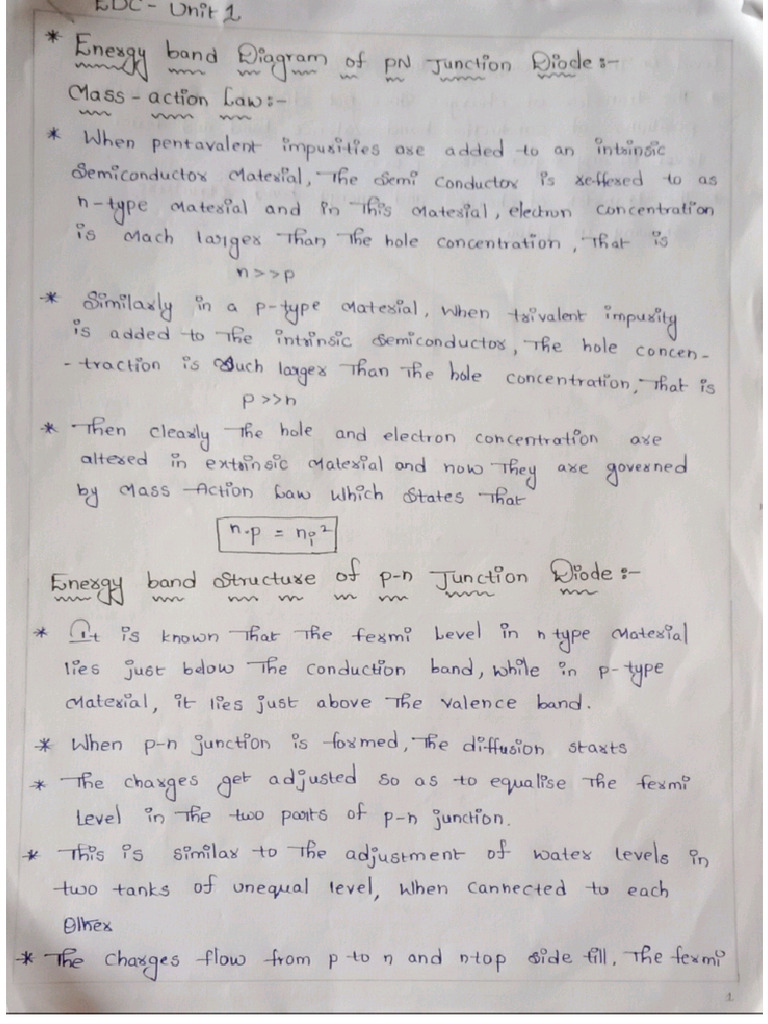 EDC - Unit 1
* Energy band Diagram of PN Junction Diode :-
Mass - action Law :-
* When pentavalent impurities are added to an intrinsic
Semiconductor Material, The Semi Conductor is reffered to as
n-type Material and in This Material, electron concentration
is Mach larger Than The hole concentration, That is
n>>p
* Similarly in a p-type Material, When trivalent impurity
is added to The intrinsic Semiconductor, The hole concen-
- traction is Such larger Than The hole concentration, That is
p>>n
* Then clearly The hole and electron concentration are
altered in extrinsic Material and now They are governed
by Mass -Action Law Which States That
n.p = ni²
Energy band Structure of p-n Junction Diode :-
* It is known That The fermi Level in n type Material
lies just below The conduction band, while in p-type
Material, it lies just above The valence band.
* When p-n junction is formed, The diffusion starts
* The charges get adjusted so as to equalise The fermi
Level in The two parts of p-n junction.
* This is similar to The adjustment of water levels in
two tanks of unequal level, When Cannected to each
other
* The Charges flow from p to n and n to p side till, The fermi
1